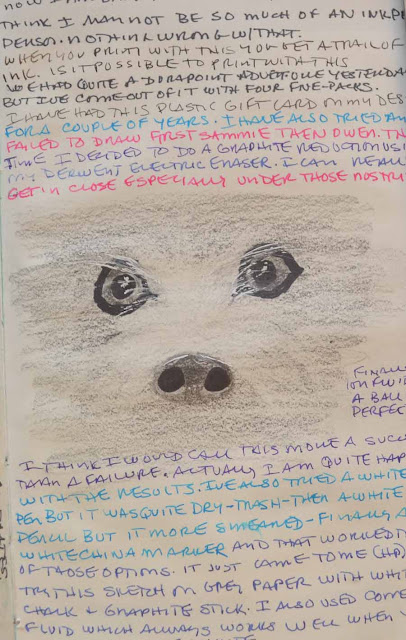 THINK I MAY NOT BE SO MUCH OF AN INKPE
PERSON. NOTHING WRONG W/THAT.
WHEN YOU PRINT WITH THIS YOU GET A TRAIL OF
INK. IS IT POSSIBLE TO PRINT WITH THIS
WE HAD QUITE A ADVENTURE YESTERDA
BUT I'VE COME OUT OF IT WITH FOUR FIVE-PACKS.
I HAVE HAD THIS PLASTIC GIFT CARD ON MY DES
FOR A COUPLE OF YEARS. I HAVE ALSO TRIED AN
FAILED TO DRAW FIRST SAMMIE THEN OWEN. TH
TIME I DECIDED TO DO A GRAPHITE REDUCTION USI
MY DERWENT ELECTRIC ERASER. I CAN REALL
GET IN CLOSE ESPECIALLY UNDER THOSE NOSTRI
FINALL
A BALL
PERFEC
I THINK I WOULD CALL THIS MORE A SUC
THAN A FAILURE. ACTUALLY I AM QUITE HAP
WITH THE RESULTS. I'VE ALSO TRIED A WHITE
PEN BUT IT WAS QUITE DRY-TRASH-THEN A WHITE
PENCIL BUT IT MORE SMEARED-FINALLY A
WHITE CHINA MARKER AND THAT WORKED
OF THOSE OPTIONS. IT JUST CAME TO ME (HA)
TRY THIS SKETCH ON GREY PAPER WITH WHIT
CHALK & GRAPHITE STICK. I ALSO USED
FLUID WHICH ALWAYS WORKS WELL WHEN